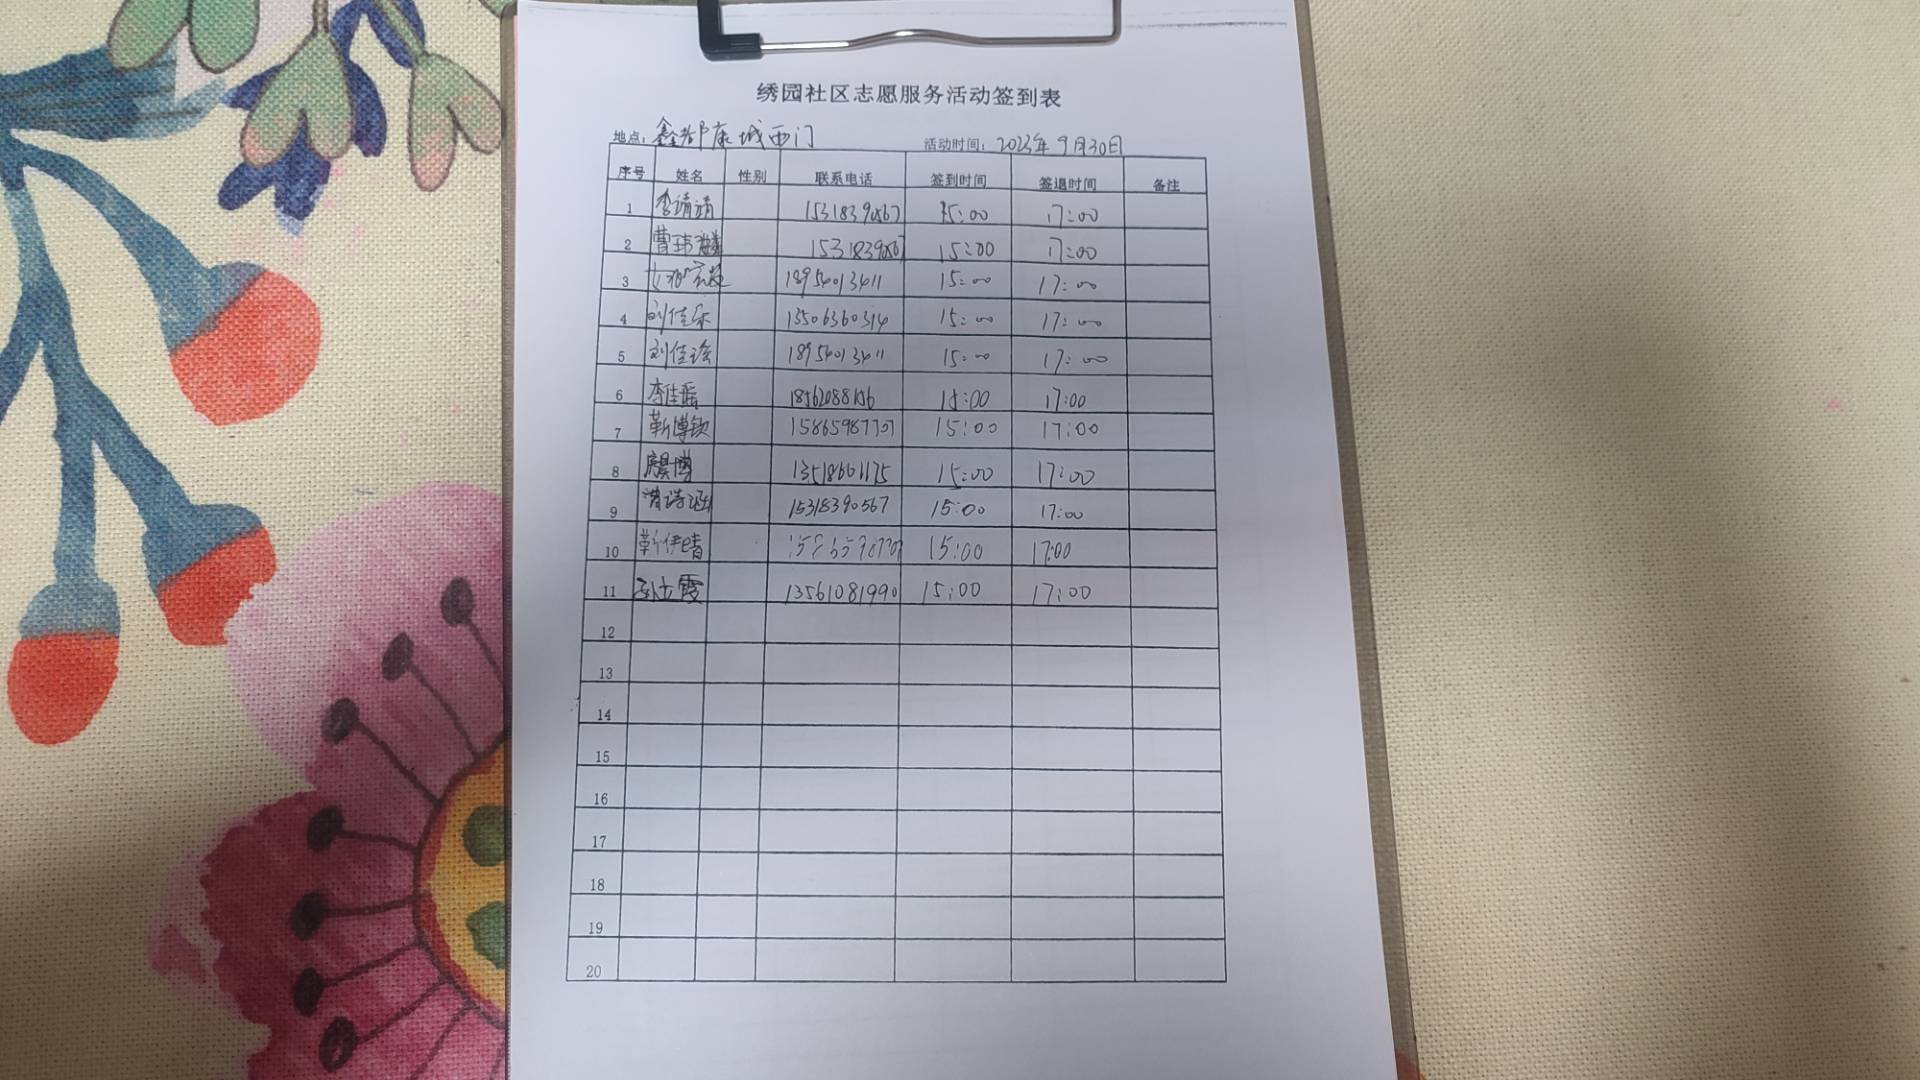 绣园社区志愿服务活动签到表
地点：鑫都康城西门 活动时间：2023年9月30日
序号 姓名 性别 联系电话 签到时间 签退时间 备注
1 李靖靖 15318390567 15:00 17:00
2 曹玮 15318390567 15:00 17:00
3 18954013411 15:00 17:00
4 刘佳乐 13506360314 15:00 17:00
5 刘佳 18954013411 15:00 17:00
6 李佳瑶 15:00 17:00
7 靳博钦 15865987707 15:00 17:00
8 博 13518601175 15:00 17:00
9 诗涵 15318390567 15:00 17:00
10 靳伊晴 15:00 17:00
11 孙立霞 13561081990 15:00 17:00
12
13
14
15
16
17
18
19
20